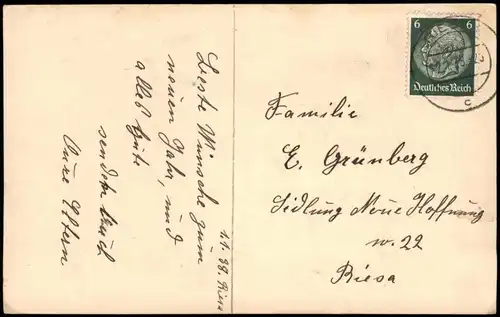 Beste Wünsche zum
neuen Jahr, und
alles Gute
senden Euch
Eure Eltern
1.1.38. Riesa
6 6
Deutsches Reich
c
Familie
E. Grünberg
Sidlung Neue Hoffnung
w. 22
Riesa